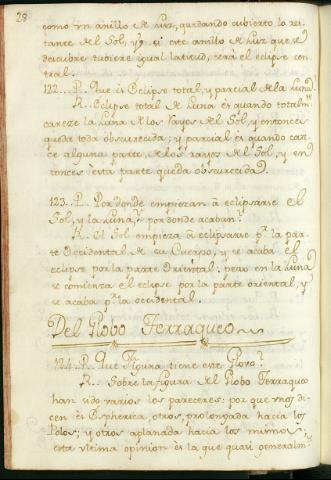 28
como vn anillo de luz, quedando cubierto lo res-
tante del Sol, y si este anillo de luz que se
descubre tubiere igual latitud, será el eclipse cen-
tral.
122... P. Que es Eclipse total, y parcial de la Luna?
R. Eclipse total de Luna es quando totalmte
careze la Luna de los rayos del Sol, y entonces
queda toda obscurecida; y parcial es quando care-
ce alguna parte de los rayos del Sol, y en-
tonces esta parte queda obscurecida.
123.. P. Por donde empiezan â eclipsarse el
Sol, y la Luna, y por donde acaban?
R. El Sol empieza â eclipsarse pr la par-
te Occidental de su Cuerpo, y se acaba el
eclipse por la parte Oriental; pero en la Luna
se comienza el eclipse por la parte oriental, y
se acaba pr la occidental.
Del Globo Terraqueo
124. P. Que Figura tiene este Glovo?
R. Sobre la figura del Globo Terraqueo
han sido varios los pareceres: por que vnos di-
cen es Espherica, otros, prolongada hacia los
Polos; y otros aplanada hacia los mismos;
esta vltima opinion es la que quasi generalm-